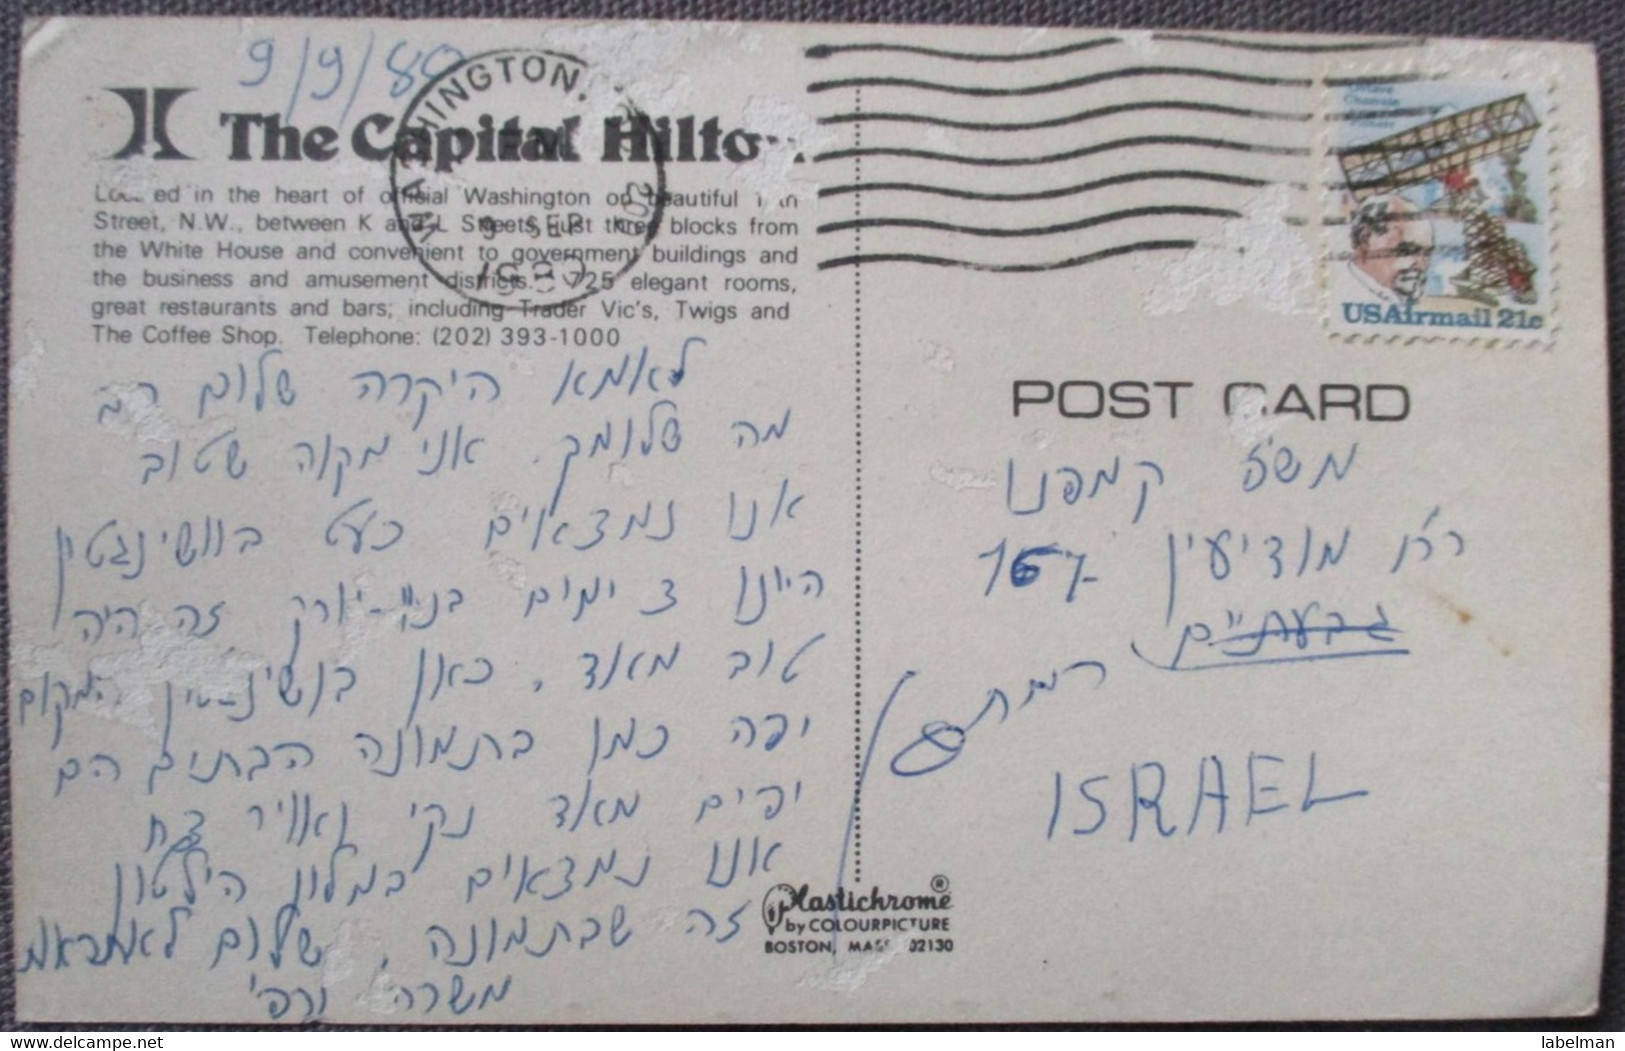 9/9/80
The Capital Hilton
Located in the heart of official Washington on beautiful 16th
Street, N.W., between K and L Streets, just three blocks from
the White House and convenient to government buildings and
the business and amusement districts. 725 elegant rooms,
great restaurants and bars, including Trader Vic's, Twigs and
The Coffee Shop. Telephone: (202) 393-1000
WASHINGTON,
9 SEP
1980
USAirmail 21c
לאמא היקרה שלום רב
מה שלומך. אני מקוה שטוב
אנו נמצאים כעט בוושינגטין
היינו 3 ימים בניו-יורק זה היה
טוב מאד, כאן בוושינגטין המקום
יפה כמו בתמונה הבתים הם
יפים מאד נקי ואויר צח
אנו נמצאים במלון הילטון
זה שבתמונה, שלום
משרה ורפי
POST CARD
קמפנו
רח מודיעין 167
גבעתיים
רמת גן
ISRAEL
Plastichrome®
by COLOURPICTURE
BOSTON, MASS 02130
labelman
www.delcampe.net